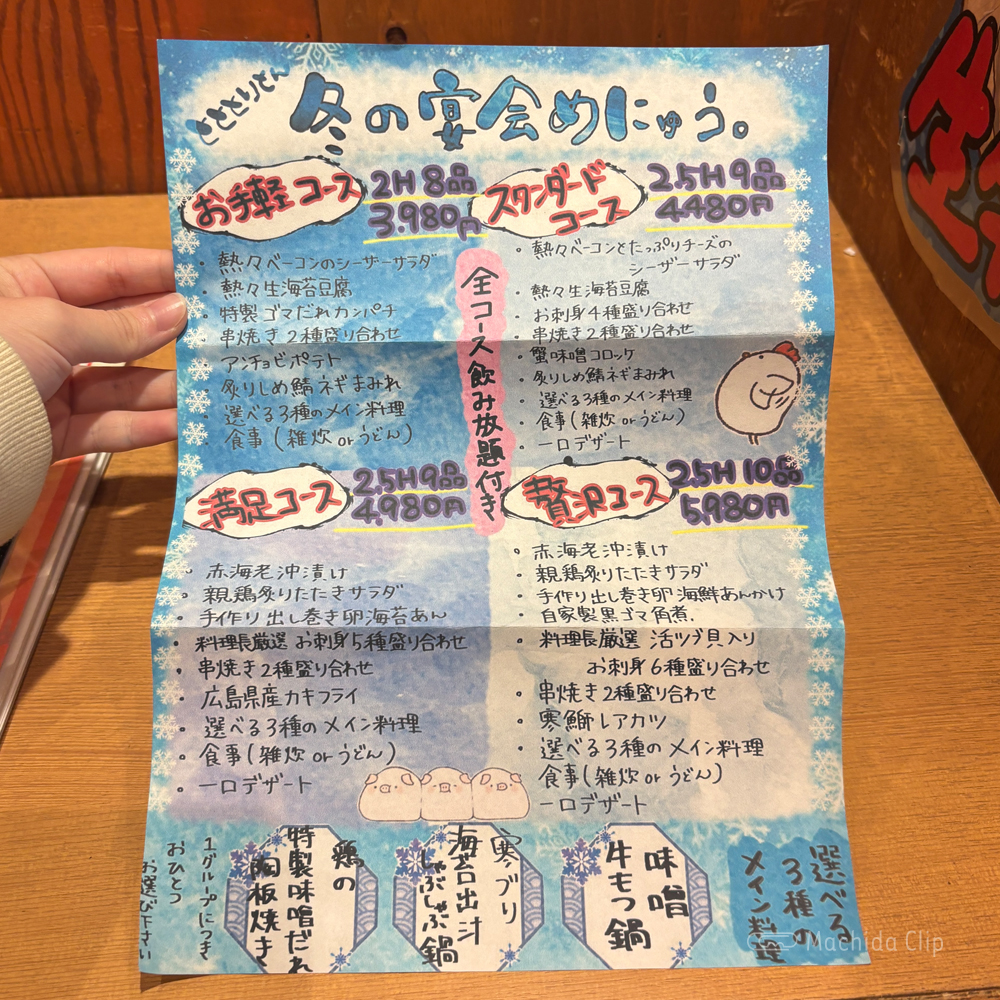 とととりとん
冬の宴会めにゅう。
お手軽コース
2H 8品
3.980円
・熱々ベーコンのシーザーサラダ
・熱々生海苔豆腐
・特製ゴマだれカンパチ
・串焼き2種盛り合わせ
・アンチョビポテト
・炙りしめ鯖ネギまみれ
・選べる3種のメイン料理
・食事(雑炊orうどん)
スタンダード
コース
2.5H 9品
4480円
・熱々ベーコンとたっぷりチーズの
シーザーサラダ
・熱々生海苔豆腐
・お刺身4種盛り合わせ
・串焼き2種盛り合わせ
・蟹味噌コロッケ
・炙りしめ鯖ネギまみれ
・選べる3種のメイン料理
・食事(雑炊orうどん)
・一口デザート
全コース飲み放題付き
満足コース
2.5H 9品
4,980円
・赤海老沖漬け
・親鶏炙りたたきサラダ
・手作り出し巻き卵海苔あん
・料理長厳選 お刺身5種盛り合わせ
・串焼き2種盛り合わせ
・広島県産カキフライ
・選べる3種のメイン料理
・食事(雑炊orうどん)
・一口デザート
贅沢コース
2.5H 10品
5,980円
・赤海老沖漬け
・親鶏炙りたたきサラダ
・手作り出し巻き卵海鮮あんかけ
・自家製黒ゴマ角煮.
・料理長厳選 活ツブ貝入り
お刺身6種盛り合わせ
・串焼き2種盛り合わせ
・寒鰤レアカツ
・選べる3種のメイン料理
食事(雑炊orうどん)
一口デザート
選べる
3種の
メイン料理
味噌
牛もつ鍋
寒ブリ
海苔出汁
しゃぶしゃぶ鍋
鶏の
特製味噌だれ
陶板焼き
1グループにつき
おひとつ
お選び下さい
Machida Clip